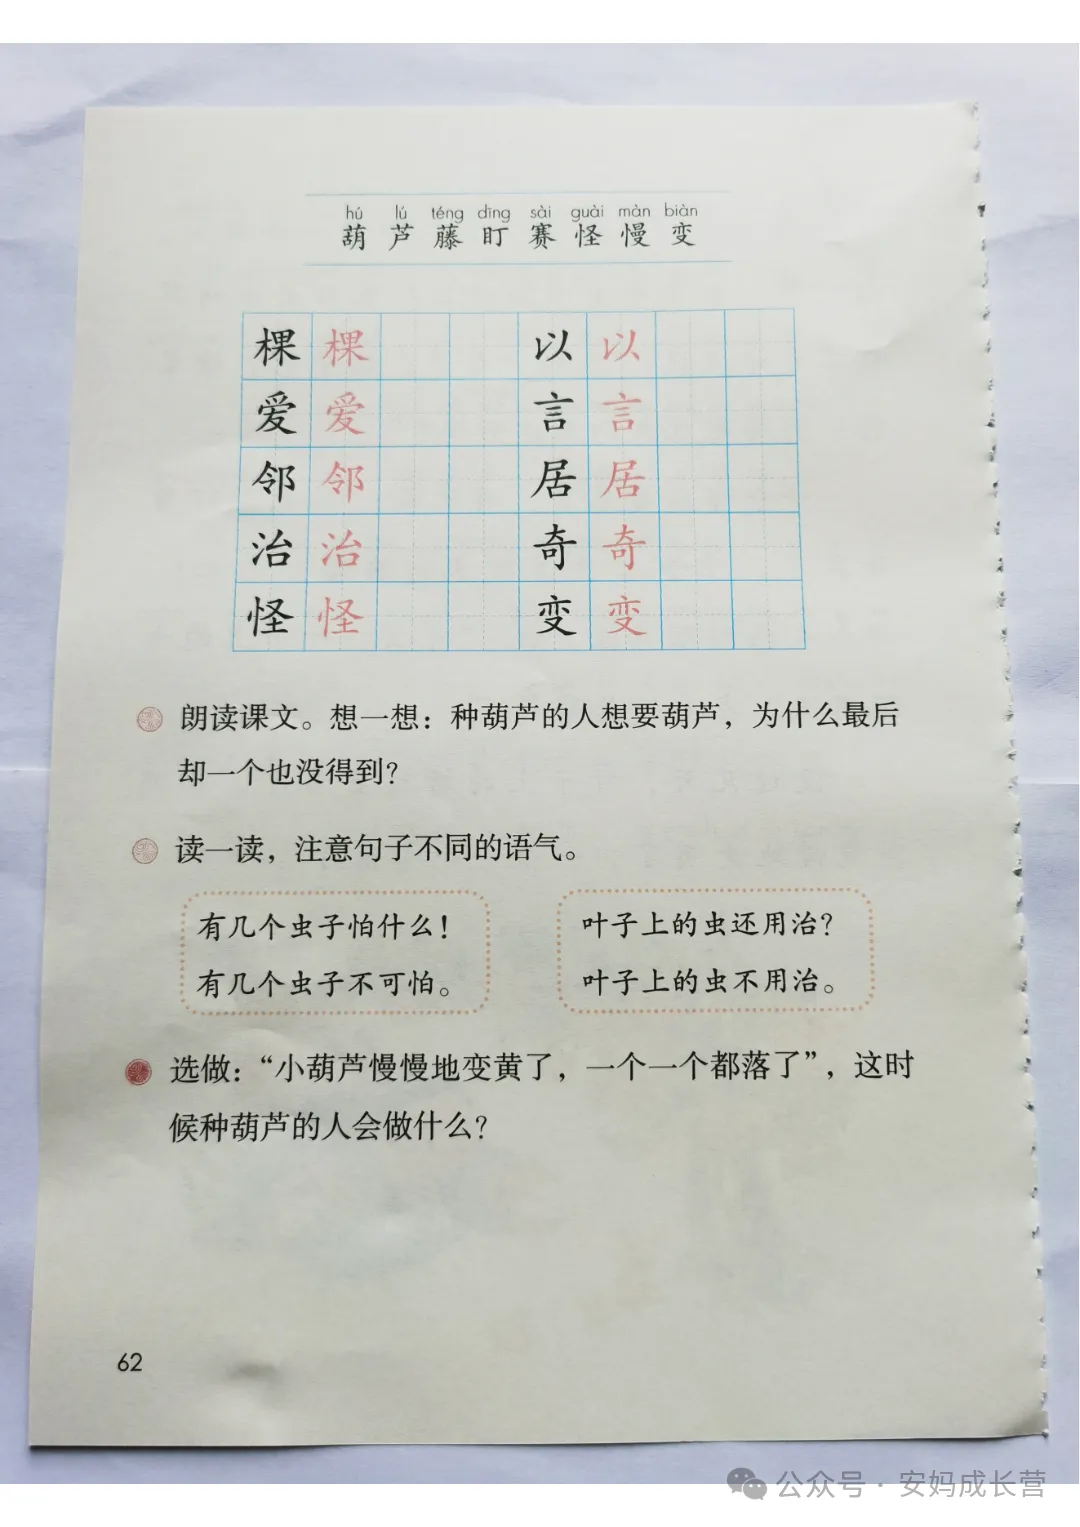 hú lú téng dīng sài guài màn biàn
葫 芦 藤 盯 赛 怪 慢 变
棵 棵 以 以
爱 爱 言 言
邻 邻 居 居
治 治 奇 奇
怪 怪 变 变
朗读课文。想一想：种葫芦的人想要葫芦，为什么最后
却一个也没得到？
读一读，注意句子不同的语气。
有几个虫子怕什么！
有几个虫子不可怕。
叶子上的虫还用治？
叶子上的虫不用治。
选做：“小葫芦慢慢地变黄了，一个一个都落了”，这时
候种葫芦的人会做什么？
62
公众号·安妈成长营